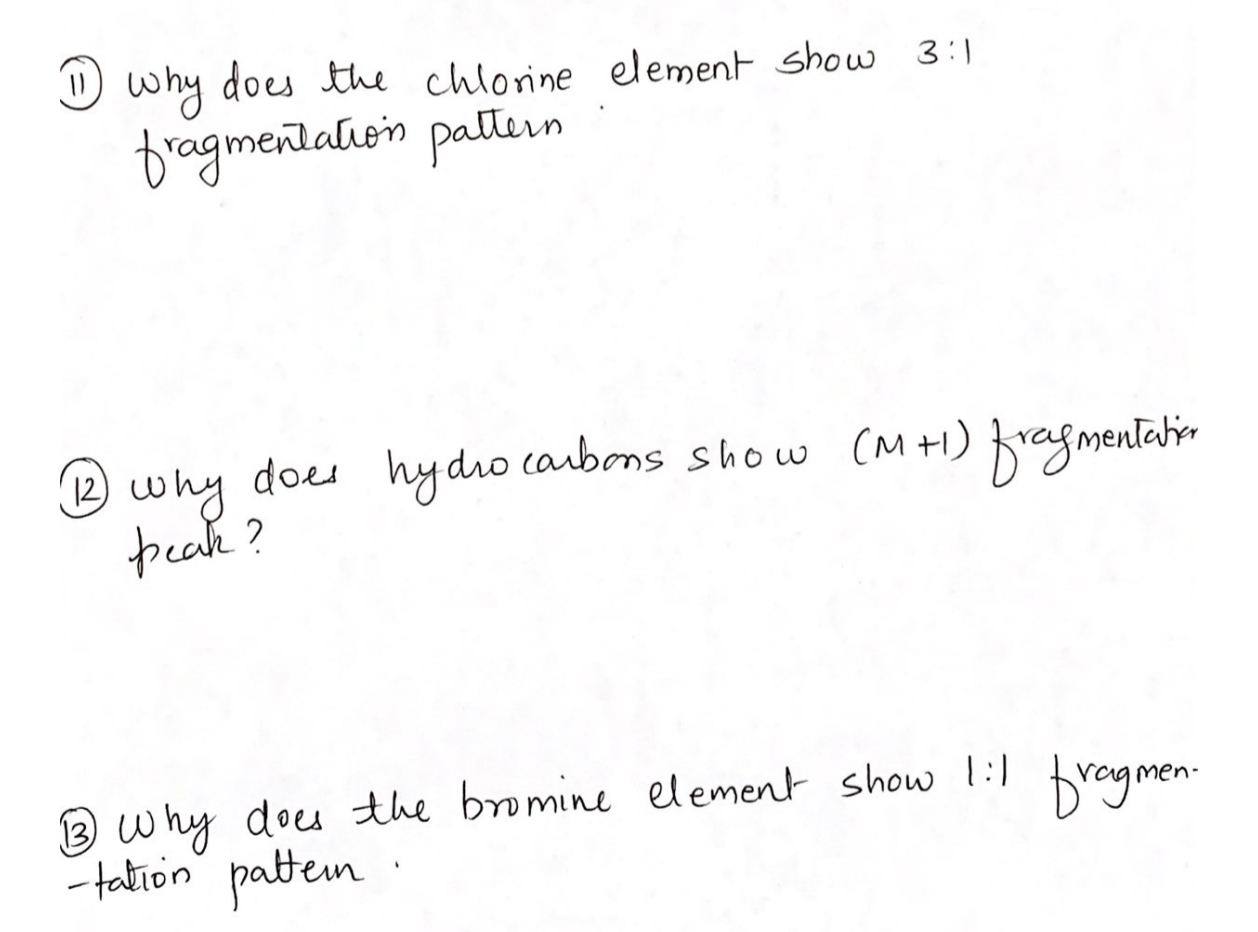 ⑪ why does the chlorine element show 3:1
fragmentation pattern
⑫ why does hydrocarbons show (M+1) fragmentation
peak?
⑬ why does the bromine element show 1:1 fragmen-
-tation pattern.